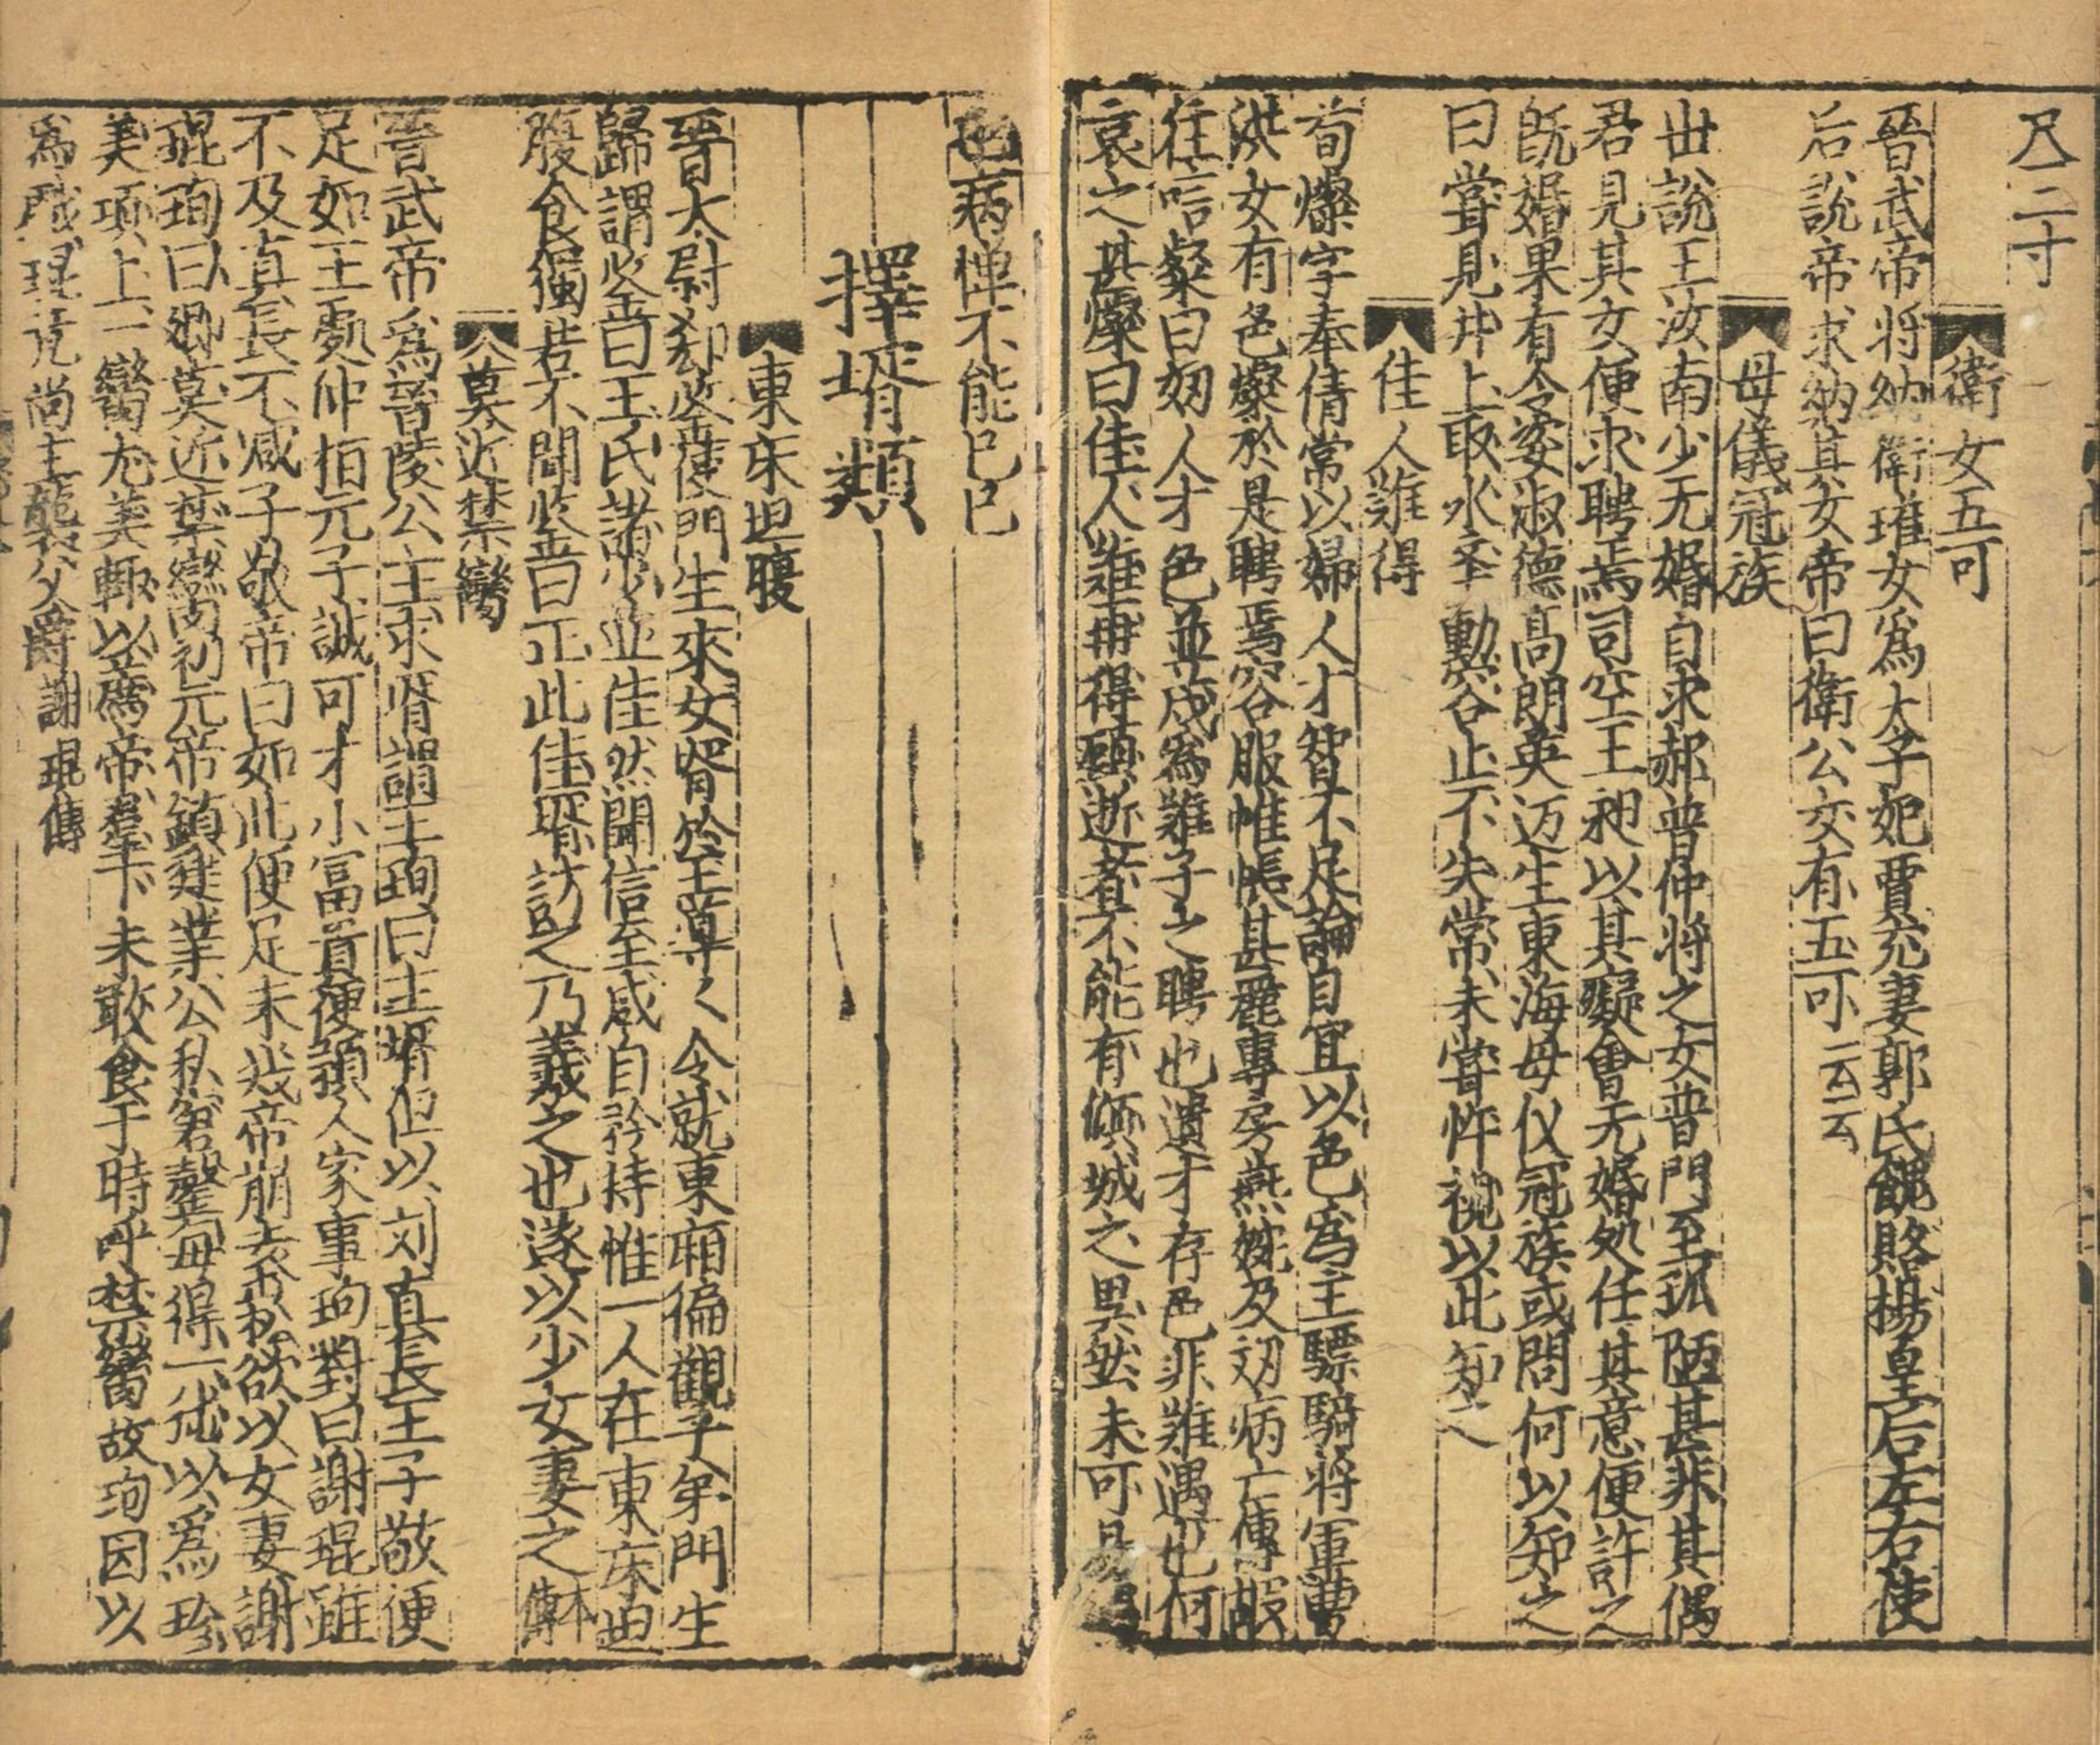 尺二寸
衛女五可
晉武帝将納衛瓘女爲太子妃賈充妻郭氏餽賂楊皇后左右使
后說帝求納其女帝曰衛公女有五可云云
母儀冠族
世說王汝南少无婚自求郝普仲将之女普門至孤陋甚非其偶
君見其女便求聘焉司空王昶以其癡會无婚処任其意便許之
既婚果有令姿淑德高朗英迈生東海母仪冠族或問何以知之
曰嘗見井上取水李動容止不失常未嘗忤視以此知之
佳人難得
荀燦字奉倩常以婦人才智不足論自宜以色爲主驃騎将軍曹
洪女有色燦於是聘焉容服帷帳甚麗專房燕婉及𥘉病亡傅嘏
往唁粲曰婦人才色並茂爲難子之聘也遺才存色非難遇也何
哀之甚燦曰佳人難再得顧逝者不能有傾城之異然未可
病惮不能已已
擇壻類
東床坦腹
晉太尉郄鉴使門生來女婿於王導〻令就東廂徧觀子弟門生
歸謂鉴曰王氏諸少並佳然聞信至咸自矜持惟一人在東床坦
腹食獨若不聞鉴曰正此佳壻訪之乃義之也遂以少女妻之本傳
莫近禁臠
晉武帝爲晉陵公主求婿謂王珣曰主壻但以刘真長王子敬便
足如王處仲桓元子誠可才小富貴便預人家事珣對曰謝琨雖
不及真長不减子敬帝曰如此便足未幾帝崩袁崧欲以女妻謝
琨珣曰卿莫近禁臠初元帝鎮建業公私窘罄每得一㹠以爲珍
美項上一臠尤美輒以薦帝羣下未敢食于時呼禁臠故珣因以
爲戯琨竟尚主襲父爵謝琨傳